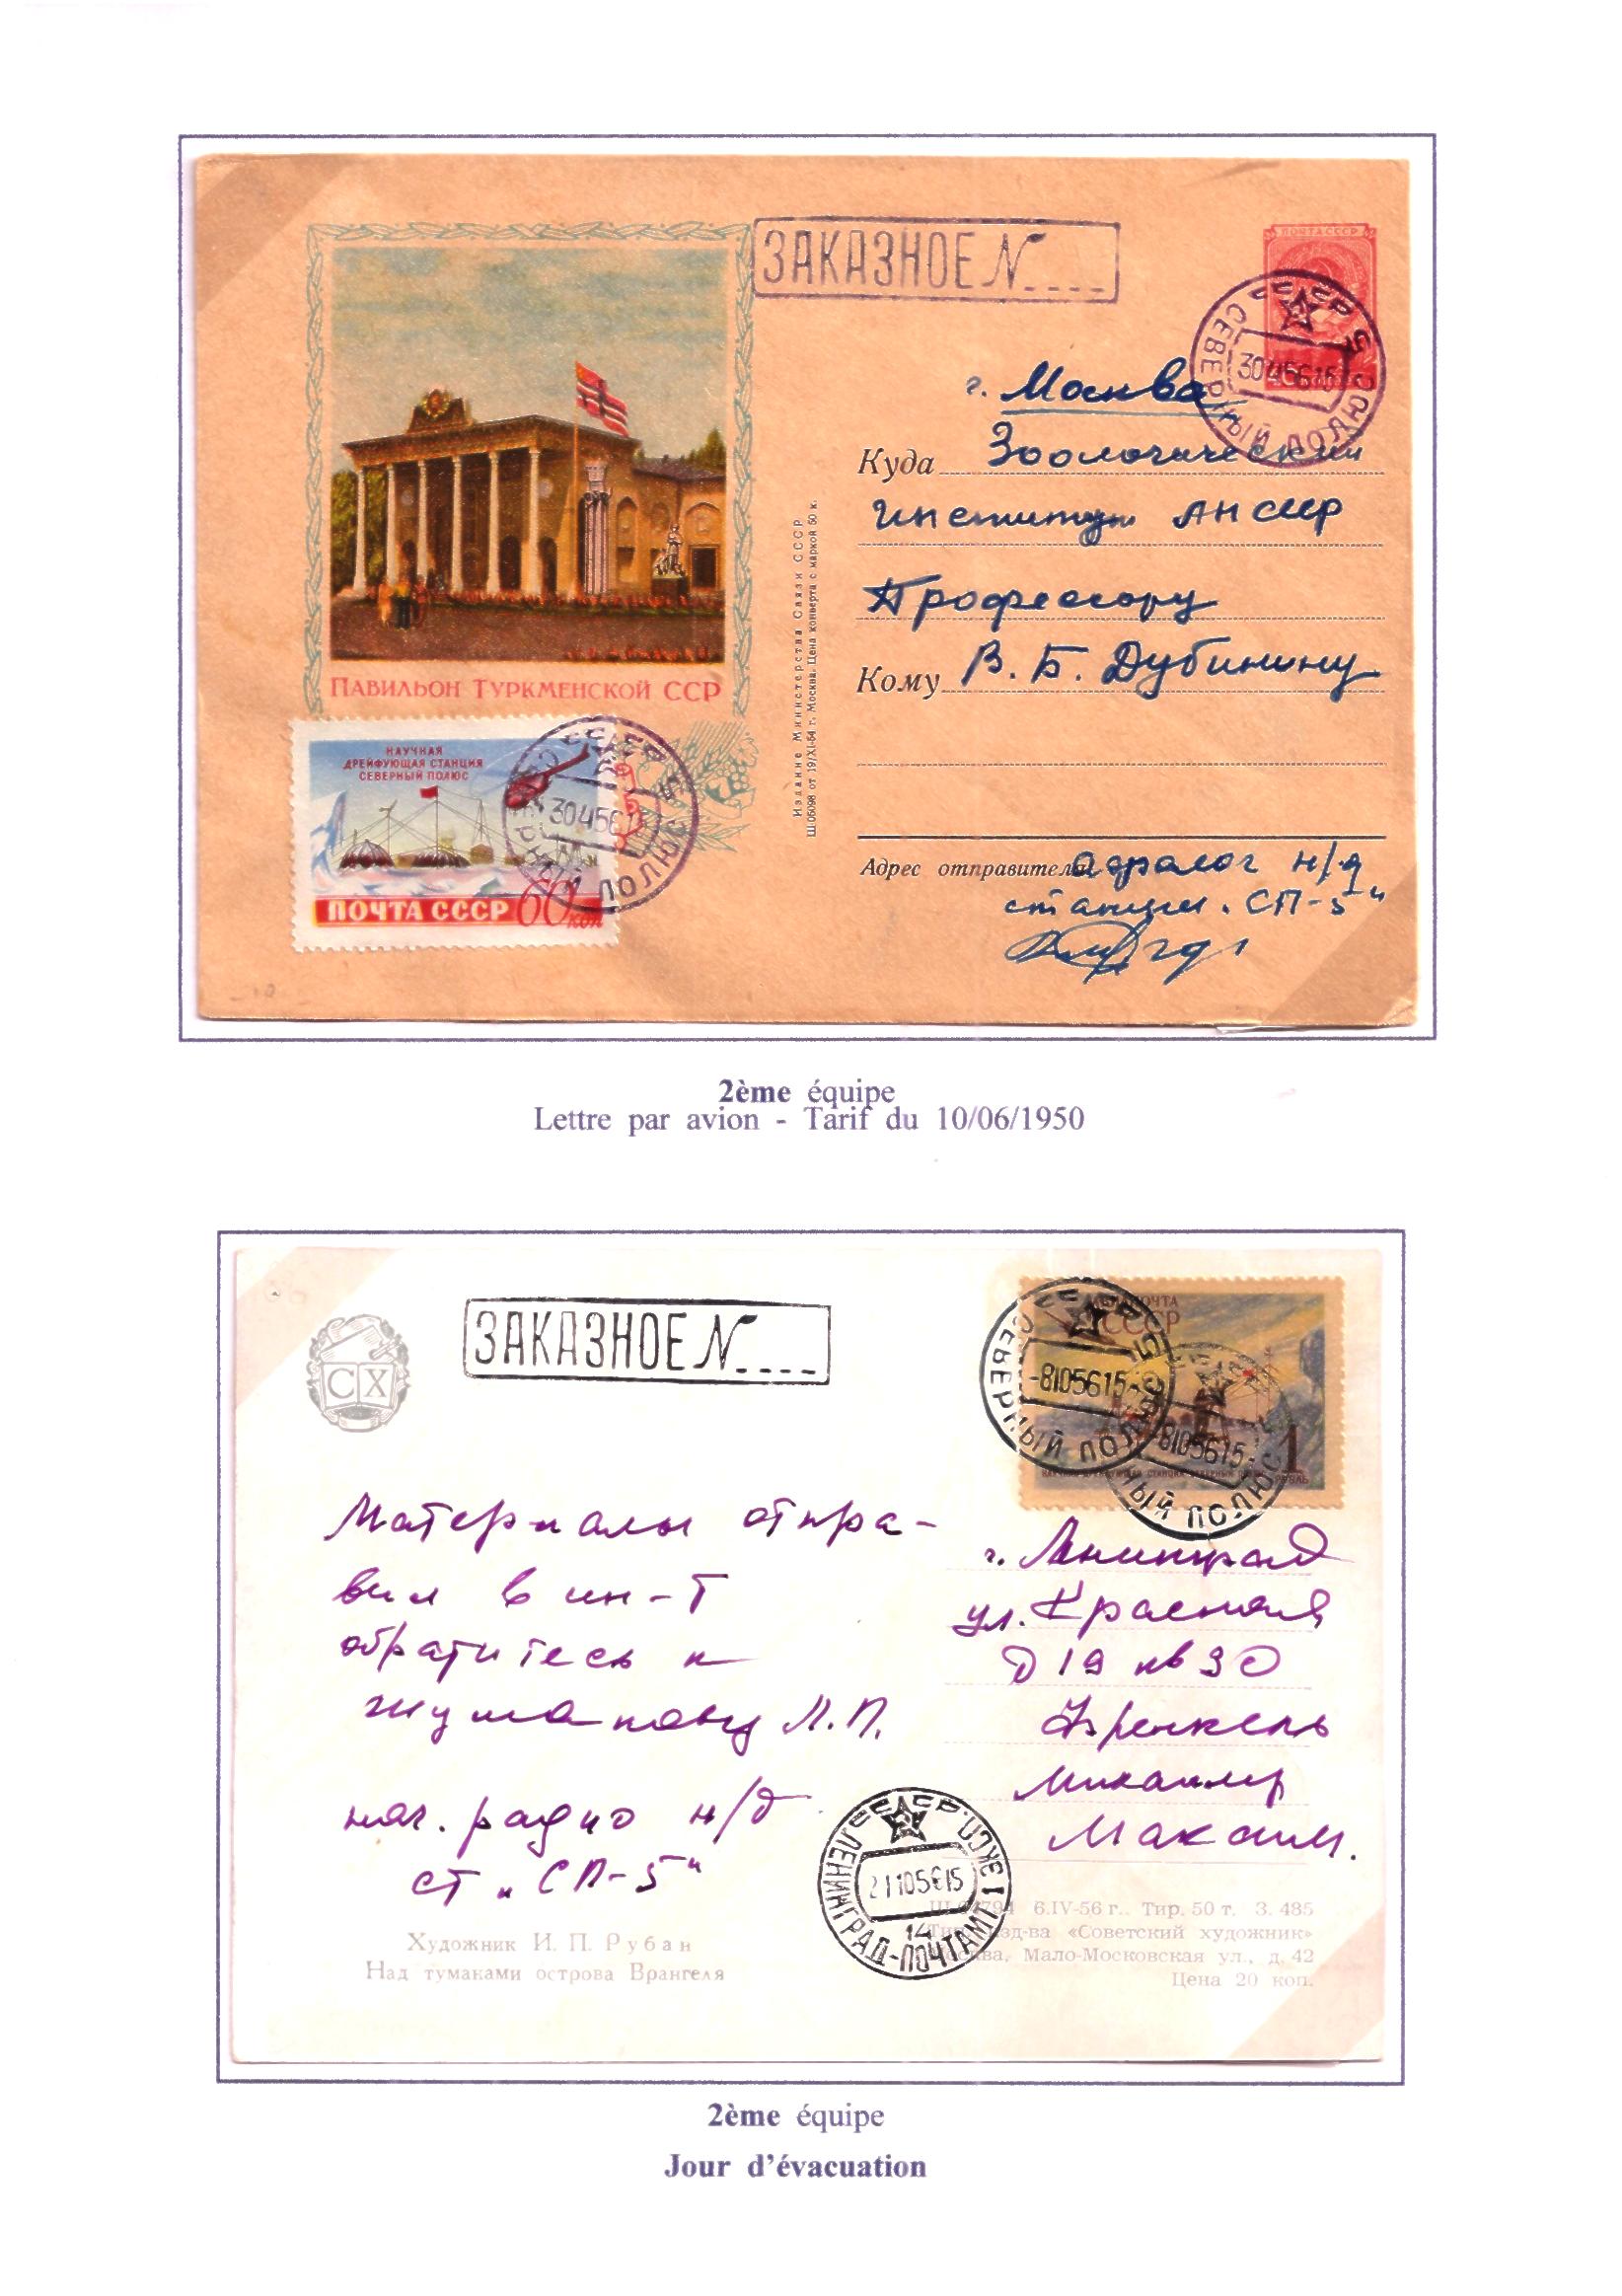 ЗАКАЗНОЕ N....
ПОЧТА СССР
СССР
СЕВЕРНЫЙ ПОЛЮС 5
30 4 56 15
г. Москва
Куда Зоологический
институт АН СССР
Профессору
Кому В. Б. Дубинину
Издание Министерства Связи СССР
Ш06098 от 19/XI-54 г. Москва. Цена конверта с маркой 50 к.
ПАВИЛЬОН ТУРКМЕНСКОЙ ССР
НАУЧНАЯ
ДРЕЙФУЮЩАЯ СТАНЦИЯ
СЕВЕРНЫЙ ПОЛЮС
ПОЧТА СССР 60 КОП
СССР
СЕВЕРНЫЙ ПОЛЮС 5
30 4 56 15
Адрес отправителя н/д
станции „СП-5"
2ème équipe
Lettre par avion - Tarif du 10/06/1950
ЗАКАЗНОЕ N....
СХ
АВИАПОЧТА
СССР
1
РУБЛЬ
СССР
СЕВЕРНЫЙ ПОЛЮС 5
-8 10 56 15-
-8 10 56 15-
НЫЙ ПОЛЮС
Материалы отпра-
вил в ин-т
обратитесь к
Жуманову Л.П.
нач. радио н/д
ст „СП-5"
г. Ленинград
ул. Красная
д 19 кв 30
Кренкель
Михаилу
Максим.
СССР
ЛЕНИНГРАД-ПОЧТАМТ 1 ЭКСП.
21 10 56 15
14
Художник И. П. Рубан
Над тумаками острова Врангеля
6.IV-56 г. Тир. 50 т. З. 485
изд-ва «Советский художник»
Москва, Мало-Московская ул., д. 42
Цена 20 коп.
2ème équipe
Jour d'évacuation